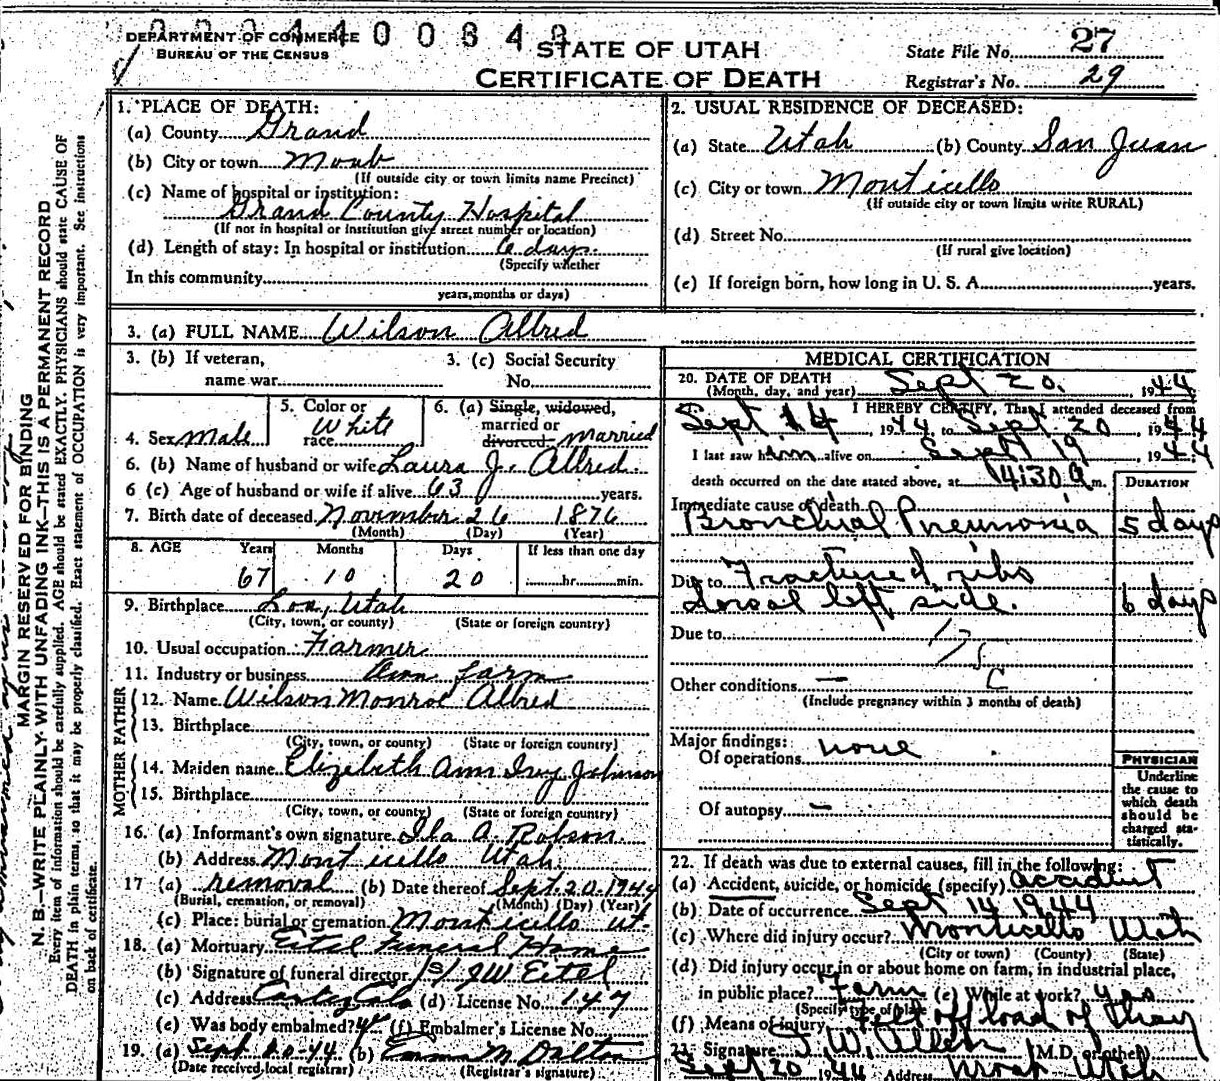 DEPARTMENT OF COMMERCE
BUREAU OF THE CENSUS
STATE OF UTAH
CERTIFICATE OF DEATH
State File No. 27
Registrar's No. 29
MARGIN RESERVED FOR BINDING
N. B.—WRITE PLAINLY WITH UNFADING INK—THIS IS A PERMANENT RECORD
Every item of information should be carefully supplied. AGE should be stated EXACTLY. PHYSICIANS should state CAUSE OF
DEATH in plain terms, so that it may be properly classified. Exact statement of OCCUPATION is very important. See instructions
on back of certificate.
1. PLACE OF DEATH:
(a) County Grand
(b) City or town Moab
(If outside city or town limits name Precinct)
(c) Name of hospital or institution:
Grand County Hospital
(If not in hospital or institution give street number or location)
(d) Length of stay: In hospital or institution 6 days.
(Specify whether
In this community
years, months or days)
2. USUAL RESIDENCE OF DECEASED:
(a) State Utah (b) County San Juan
(c) City or town Monticello
(If outside city or town limits write RURAL)
(d) Street No.
(If rural give location)
(e) If foreign born, how long in U. S. A. years.
3. (a) FULL NAME Wilson Allred
3. (b) If veteran, 3. (c) Social Security
name war No.
4. Sex Male 5. Color or race White 6. (a) Single, widowed, married or divorced married
6. (b) Name of husband or wife Laura J. Allred
6 (c) Age of husband or wife if alive 63 years.
7. Birth date of deceased November 26 1876
(Month) (Day) (Year)
8. AGE Years Months Days If less than one day
67 10 20 hr. min.
9. Birthplace Loa, Utah
(City, town, or county) (State or foreign country)
10. Usual occupation Farmer
11. Industry or business Own farm
FATHER
12. Name Wilson Monroe Allred
13. Birthplace
(City, town, or county) (State or foreign country)
MOTHER
14. Maiden name Elizebeth Ann Ivy Johnson
15. Birthplace
(City, town, or county) (State or foreign country)
16. (a) Informant's own signature Ila A. Robson
(b) Address Monticello Utah
17 (a) removal (b) Date thereof Sept. 20. 1944
(Burial, cremation, or removal) (Month) (Day) (Year)
(c) Place: burial or cremation Monticello Ut.
18. (a) Mortuary Eitel Funeral Home
(b) Signature of funeral director /s/ JW Eitel
(c) Address Cortez Colo (d) License No. 147
(e) Was body embalmed? (f) Embalmer's License No.
19. (a) Sept 20-44 (b) Emma M. Dalton
(Date received local registrar) (Registrar's signature)
MEDICAL CERTIFICATION
20. DATE OF DEATH
(Month, day, and year) Sept 20. 1944
I HEREBY CERTIFY, That I attended deceased from
Sept 14, 1944 to Sept 20, 1944
I last saw him alive on Sept 19 1944
death occurred on the date stated above, at 4:30 a m.
DURATION
Immediate cause of death
Bronchial Pneumonia 5 days
Due to Fractured ribs
dorsal left side. 6 days
Due to
Other conditions —
(Include pregnancy within 3 months of death)
Major findings:
Of operations none
Of autopsy —
PHYSICIAN
Underline
the cause to
which death
should be
charged sta-
tistically.
22. If death was due to external causes, fill in the following:
(a) Accident, suicide, or homicide (specify) accident
(b) Date of occurrence Sept 14 1944
(c) Where did injury occur? Monticello Utah
(City or town) (County) (State)
(d) Did injury occur in or about home on farm, in industrial place,
in public place? Farm (e) While at work? yes
(Specify type of place)
(f) Means of injury Fell off load of Hay
21. Signature J. W. Allen (M.D. or other)
Sept 20 1944 Address Moab Utah